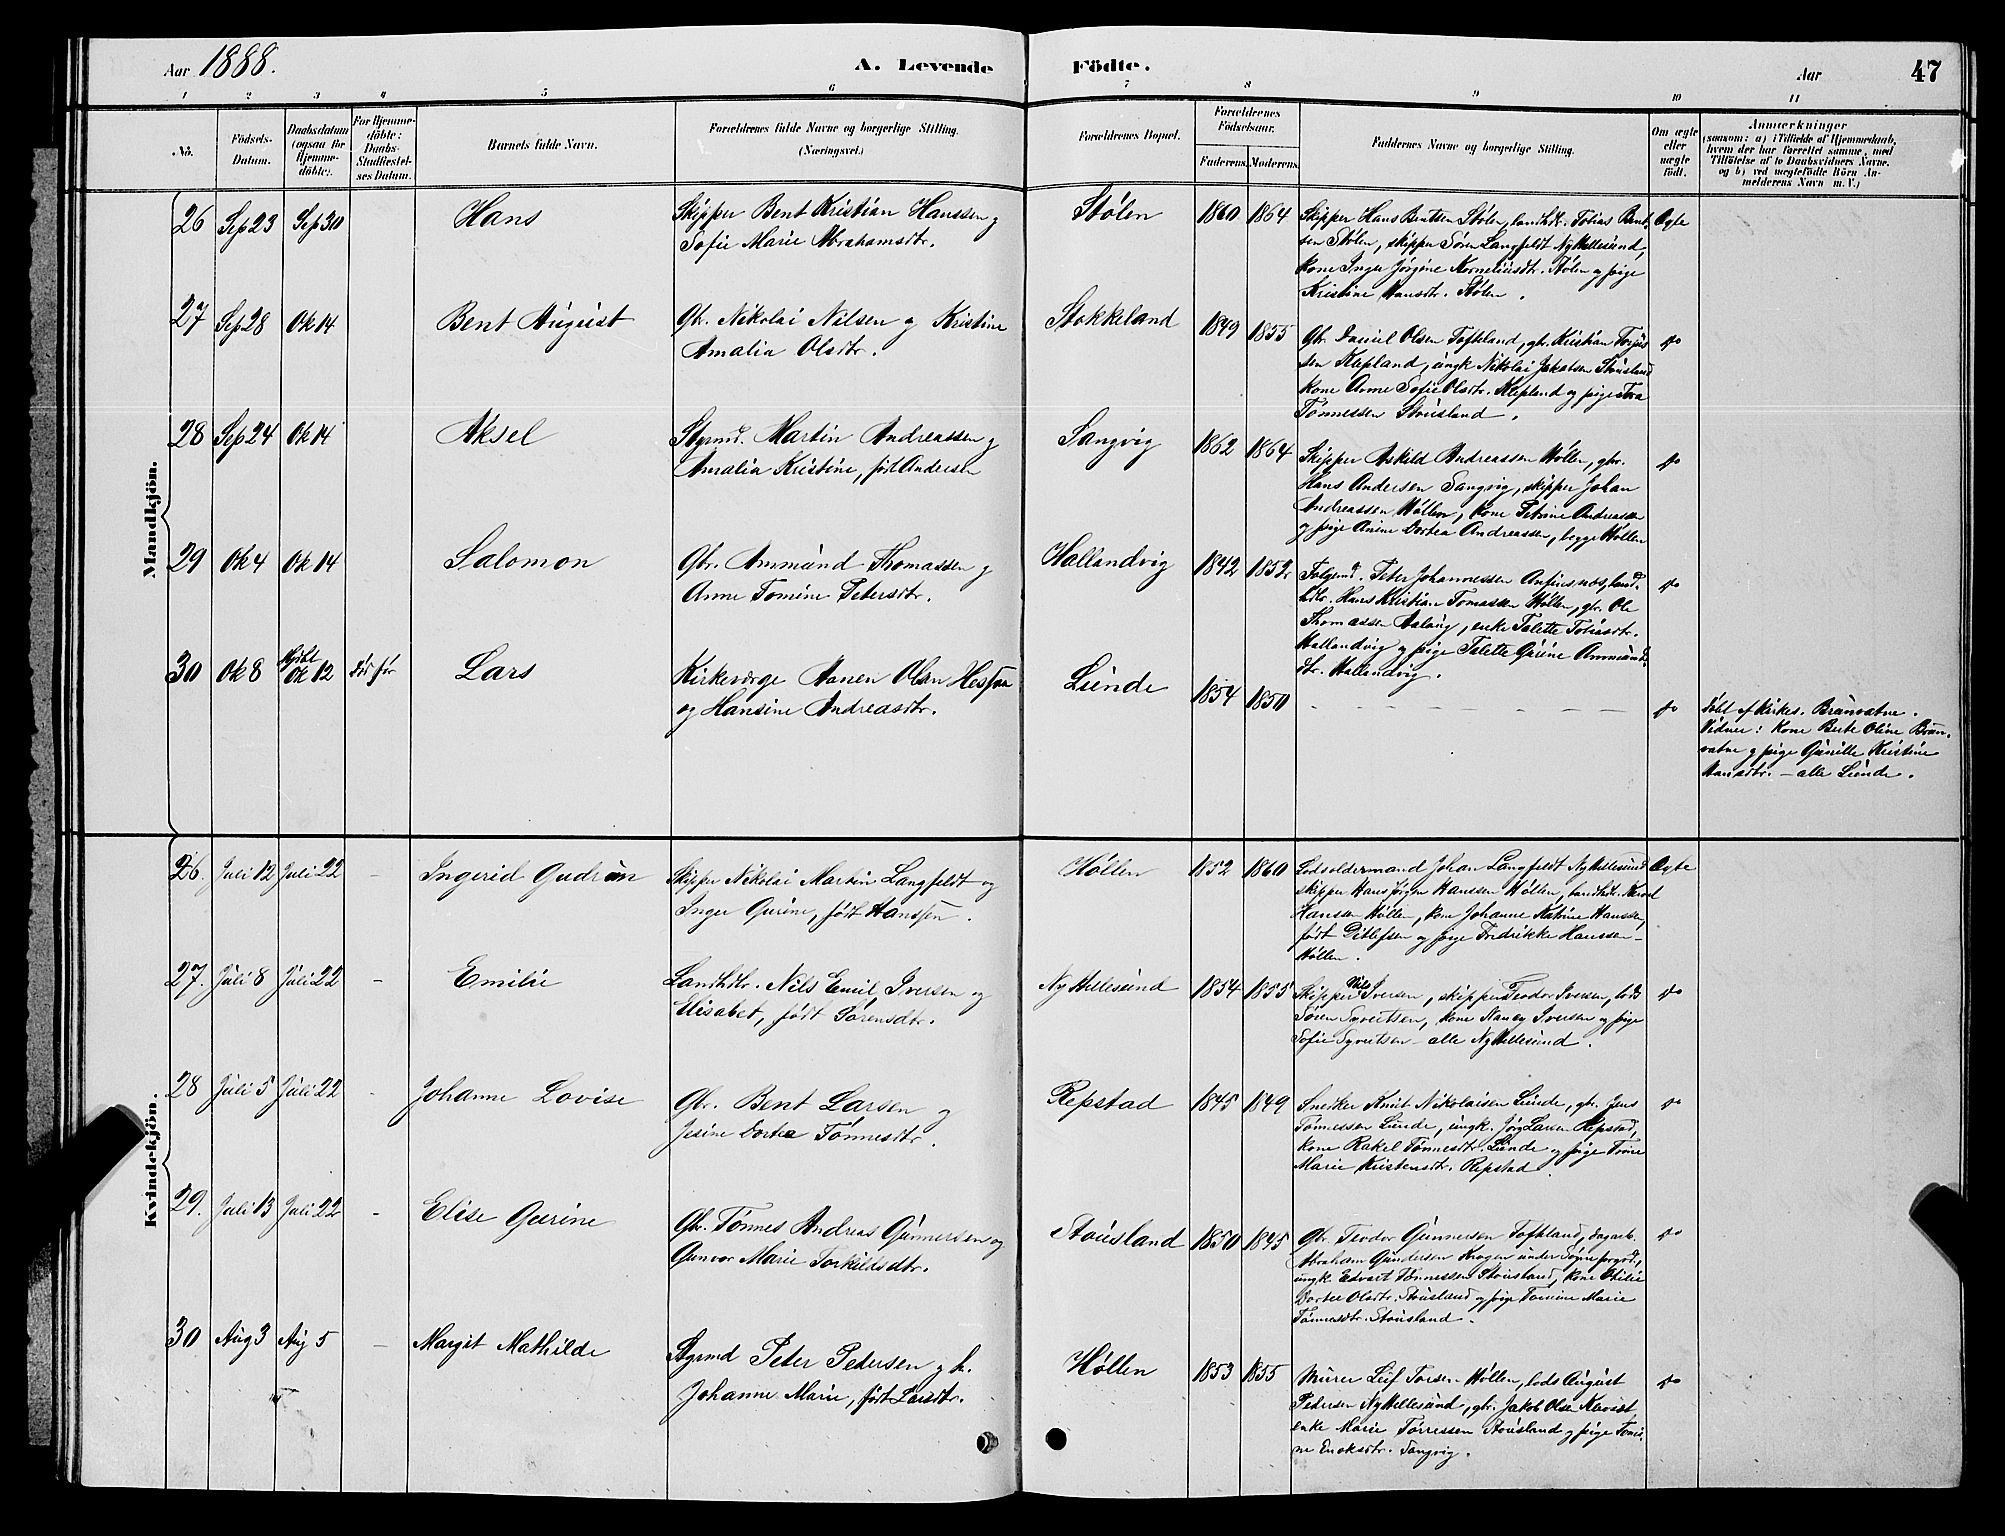 Aar 1888. A. Levende Fødte. Aar 47
1 2 3 4 5 6 7 8 9 10 11
No.
Fødsels-
Datum.
Daabsdatum
(ogsaa for
Hjemme-
døbte).
For Hjemme-
døbte:
Daabs-
Stadfæstel-
ses Datum.
Barnets fulde Navn.
Forældrenes fulde Navne og borgerlige Stilling.
(Næringsvei.)
Forældrenes Bopæl.
Forældrenes
Fødselsaar.
Faderens. Moderens.
Faddernes Navne og borgerlige Stilling.
Om ægte
eller
uægte
født.
Anmærkninger
(saasom: a) i Tilfælde af Hjemmedaab,
hvem der har forrettet samme, med
Tilføielse af to Daabsvidners Navne.
og b) ved uægtefødte Børn An-
melderens Navn m. V.)
Mandkjön.
26 Sep 23 Sep 30 Hans
Skipper Bent Kristian Hanssen og
Sofie Marie Abrahamsdtr.
Stølen 1860 1864
Skipper Hans Bentsen Stølen, landhdr. Tobias Bent-
sen Stølen, skipper Søren Langfeldt Ny Hellesund,
kone Inger Jørgine Korneliusdtr. Stølen og pige
Kristine Hansdtr. Stølen.
Ægte
27 Sep 28 Ok 14 Bent August
Gbr. Nikolai Nilsen og Kristine
Amalia Olsdtr.
Stokkeland 1849 1855
Gbr. Daniel Olsen Toftland, gbr. Kristian Terjus-
sen Klepland, ungk Nikolai Jakobsen Stousland
kone Anne Sofie Olsdtr. Klepland og pige Tea
Tønnessen Stousland.
do
28 Sep 24 Ok 14 Aksel
Styrmd. Martin Andreassen og
Amalia Kristine, født Andersen
Langvig 1862 1864
Skipper Askild Andreassen Høllen, gbr.
Hans Andersen Langvig, skipper Johan
Andreassen Høllen, kone Petrine Andreassen
og pige Anine Dortea Andreassen, begge Høllen
do
29 Ok 4 Ok 14 Salomon
Gbr. Ammund Thomassen og
Anne Tomine Petersdtr.
Hallandvig 1842 1852
Folgemd. Peter Johannessen Anfinsnæs, land-
hdlr. Hans Kristian Tomassen Høllen, gbr. Ole
Thomassen Aalaug, enke Talette Tobiasdtr.
Hallandvig og pige Talette Gurine Ammunds-
dtr. Hallandvig.
do
30 Ok 8 Hjdbt Ok 12 død før Lars
Kirkeværge Aanen Olsen Hesfaa
og Hansine Andreasdtr.
Lunde 1854 1850 do
Døbt af Kirkes. Brunvatne.
Vidner: kone Berte Oline Brun-
vatne og pige Gunille Kristine
Hansdtr. – alle Lunde.
Kvindekjön.
26. Juli 12 Juli 22 - Ingerid Gudrun
Skipper Nikolai Martin Langfeldt og
Inger Gurine, født Hanssen.
Høllen 1852 1860
Lodsoldermand Johan Langfeldt Ny Hellesund
skipper Hans Jørgen Hanssen Høllen, landhdr.
Hanssen Høllen, kone Johanne Katrine Hanssen,
født Ditlefsen og pige Fredrikke Hanssen –
Høllen.
Ægte
27. Juli 8 Juli 22 - Emilie
Landhdr. Nils Emil Iversen og
Elisabet, født Sørensdtr.
Ny Hellesund 1854 1855
Skipper Nils Iversen, skipper Teodor Iversen, lods
Søren Syvertsen, kone Nancy Iversen og pige
Sofie Syvertsen – alle Ny Hellesund.
do
28 Juli 5 Juli 22 - Johanne Lovise
Gbr. Bent Larsen og
Jesine Dortea Tønnesdtr.
Repstad 1845 1849
Snedker Knut Nikolaisen Lunde, gbr. Jens
Tønnessen Lunde, ungk. Jørg Larsen Repstad,
kone Rakel Tønnesdtr. Lunde og pige Tomine
Marie Kristensdtr. Repstad.
do
29. Juli 13 Juli 22 - Elise Gurine
Gbr. Tønnes Andreas Gunnersen og
Gunvor Marie Torkildsdtr.
Stousland 1850 1845
Gbr. Teodor Gunnersen Toftland, dagarb.
Abraham Gundersen Kragen under Søgne prgrd,
ungk. Edvart Tønnessen Stousland, kone Otilie
Dortea Olsdtr. Stousland og pige Tomine Marie
Tønnesdtr. Stousland.
do
30 Aug 3 Aug 5 - Margit Mathilde
Styrmd Peter Pedersen og h.
Johanne Marie, født Larsdtr.
Høllen 1853 1855
Murer Leif Torsen Høllen, lods August
Pedersen Ny Hellesund, gbr. Jakob Olsen
enke Marie Tørressen Stousland og pige Tomi-
ne Enoksdtr. Langvig.
do